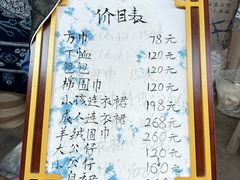 价目表
方巾 78元
T恤 120元
包包 120元
棉围巾 120元
小孩连衣裙 198元
成人连衣裙 268元
羊绒围巾 260元
大公仔 120元
小公仔 160元